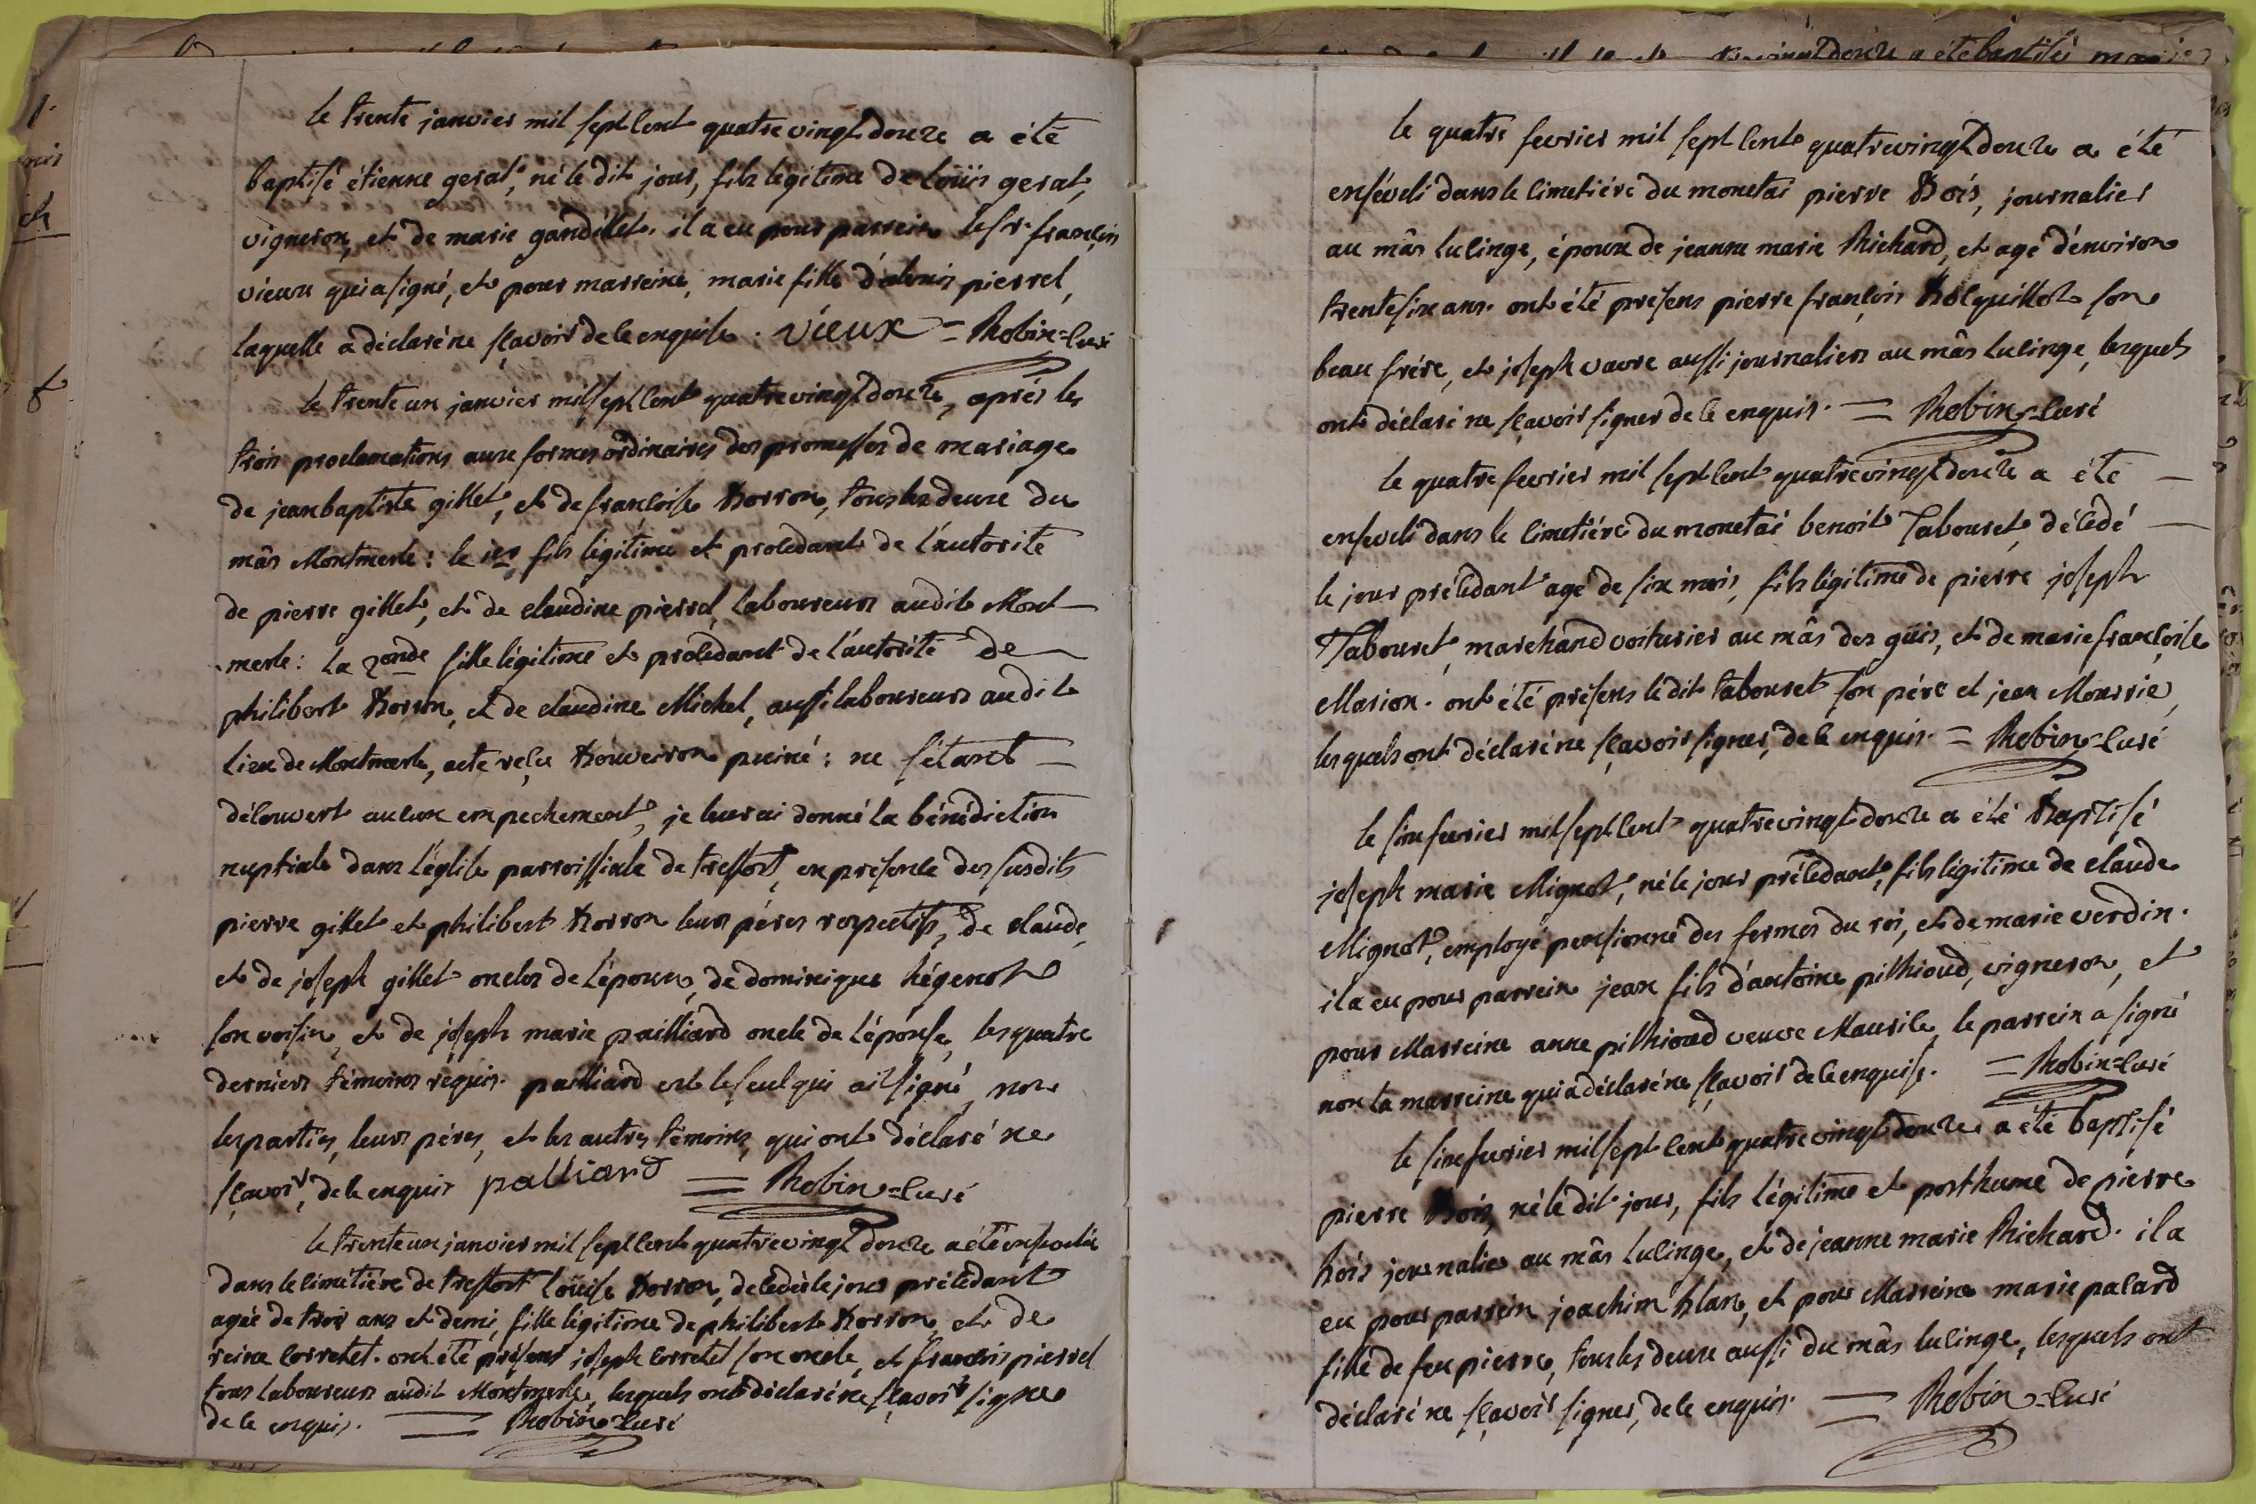 le trente janvier mil sept cent quatre vingt douze a été
baptisé étienne gerat, né le dit jour, fils légitime de loüis gerat,
vigneron, et de marie gandillet. il a eu pour parrein le sr. françois
vieux qui a signé, et pour marreine, marie fille d'alexis pierrel,
laquelle a déclaré ne sçavoir de ce enquise. vieux = Robin=curé
le trente un janvier mil sept cent quatre vingt douze, aprés les
trois proclamations aux formes ordinaires des promesses de mariage
de jean baptiste gillet, et de françoise Borron, tous les deux du
mâs Montmerle : le 1er fils légitime et procédant de l'autorité
de pierre gillet, et de claudine pierrel, laboureurs audit Mont-
merle : la 2onde fille légitime et procédant de l'autorité de
philibert Borron, et de claudine Michel, aussi laboureurs audit
lieu de Montmerle, acte reçu Bouveiron puiné : ne s'étant
découvert aucun empechement, je leur ai donné la bénédiction
nuptiale dans l'église parroissiale de treffort, en présence des susdits
pierre gillet et philibert Borron leurs péres respectifs, de claude,
et de joseph gillet oncles de l'époux, de dominique hégenot
son voisin, et de joseph marie pailliard oncle de l'épouse, les quatre
derniers témoins réquis. pailliard est le seul qui ait signé, non
les parties, leurs péres, et les autres témoins, qui ont déclaré ne
sçavoir, de ce enquis palliard = Robin=curé
le trente un janvier mil sept cent quatre vingt douze a été ensevelie
dans le cimetiére de treffort loüise Borron, décédée le jour précédant
agée de trois ans et demi, fille légitime de philibert Borron, et de
reine corretet. ont été présens joseph corretet son oncle, et françois pierrel
tous laboureurs audit Montmerle, lesquels ont déclaré ne sçavoir signer
de ce enquis. = Robin=curé
le quatre fevrier mil sept cent quatre vingt douze a été
enséveli dans le cimetiére du monetai pierre Bois, journalier
au mâs lucinge, époux de jeanne marie Richard, et agé d'environ
trente six ans. ont été présens pierre françois Bocquillot son
beau frére, et joseph vavre aussi journaliers au mâs lucinge, lesquels
ont déclaré ne sçavoir signer de ce enquis. = Robin=curé
le quatre fevrier mil sept cent quatre vingt douze a été
enseveli dans le cimetiére du monetai benoit Tabouret, décédé
le jour précédant agé de six mois, fils légitime de pierre joseph
Tabouret, marchand voiturier au mâs des guis, et de marie françoise
Marion. ont été présens ledit tabouret son pére et jean Mourrier,
lesquels ont déclaré ne sçavoir signer, de ce enquis. = Robin=curé
le six fevrier mil sept cent quatre vingt douze a été Baptisé
joseph marie Mignot, né le jour précédant, fils légitime de claude
Mignot, employé pensionné des fermes du roi, et de marie verdin.
il a eu pour parrein jean fils d'antoine pilhioud, vigneron, et
pour Marreine anne pilhioud veuve Maurile, le parrein a signé
non la marreine qui a déclaré ne sçavoir de ce enquise. = Robin=curé
le six fevrier mil sept cent quatre vingt douze a été baptisé
pierre Bois, né le dit jour, fils légitime et posthume de pierre
bois journalier au mâs lucinge, et de jeanne marie Richard. il a
eu pour parrein joachim blanc, et pour Marreine marie palard
fille de feu pierre, tous les deux aussi du mâs lucinge, lesquels ont
déclaré ne sçavoir signer, de ce enquis. = Robin=curé